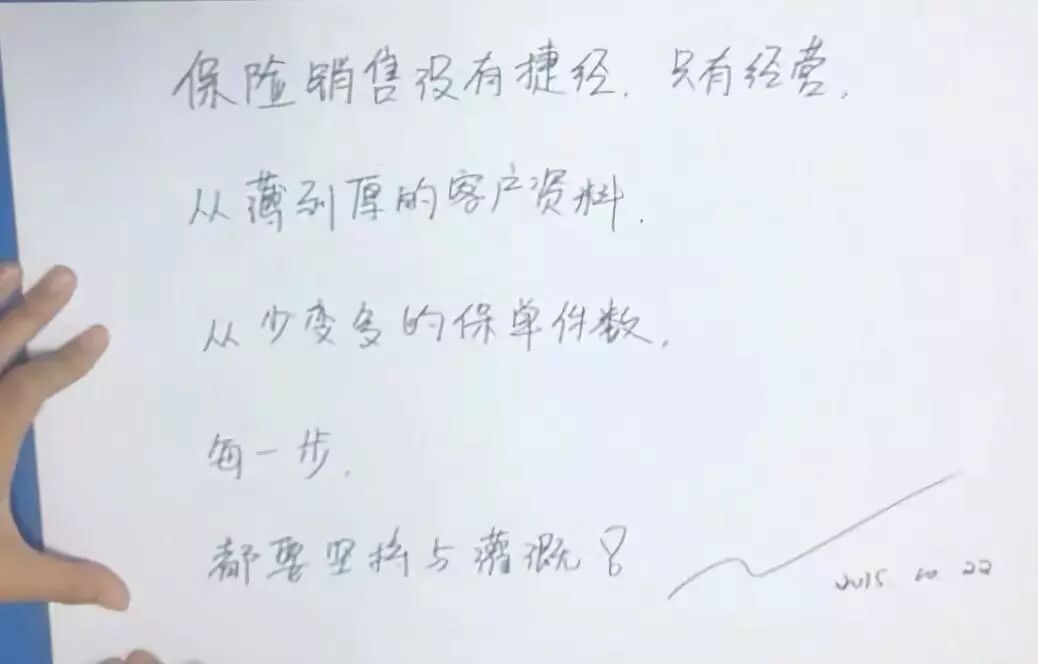 保险销售没有捷经. 只有经营.
从薄到厚的客户资料.
从少变多的保单件数.
每一步.
都要坚持与灌溉!
2015. 10. 22